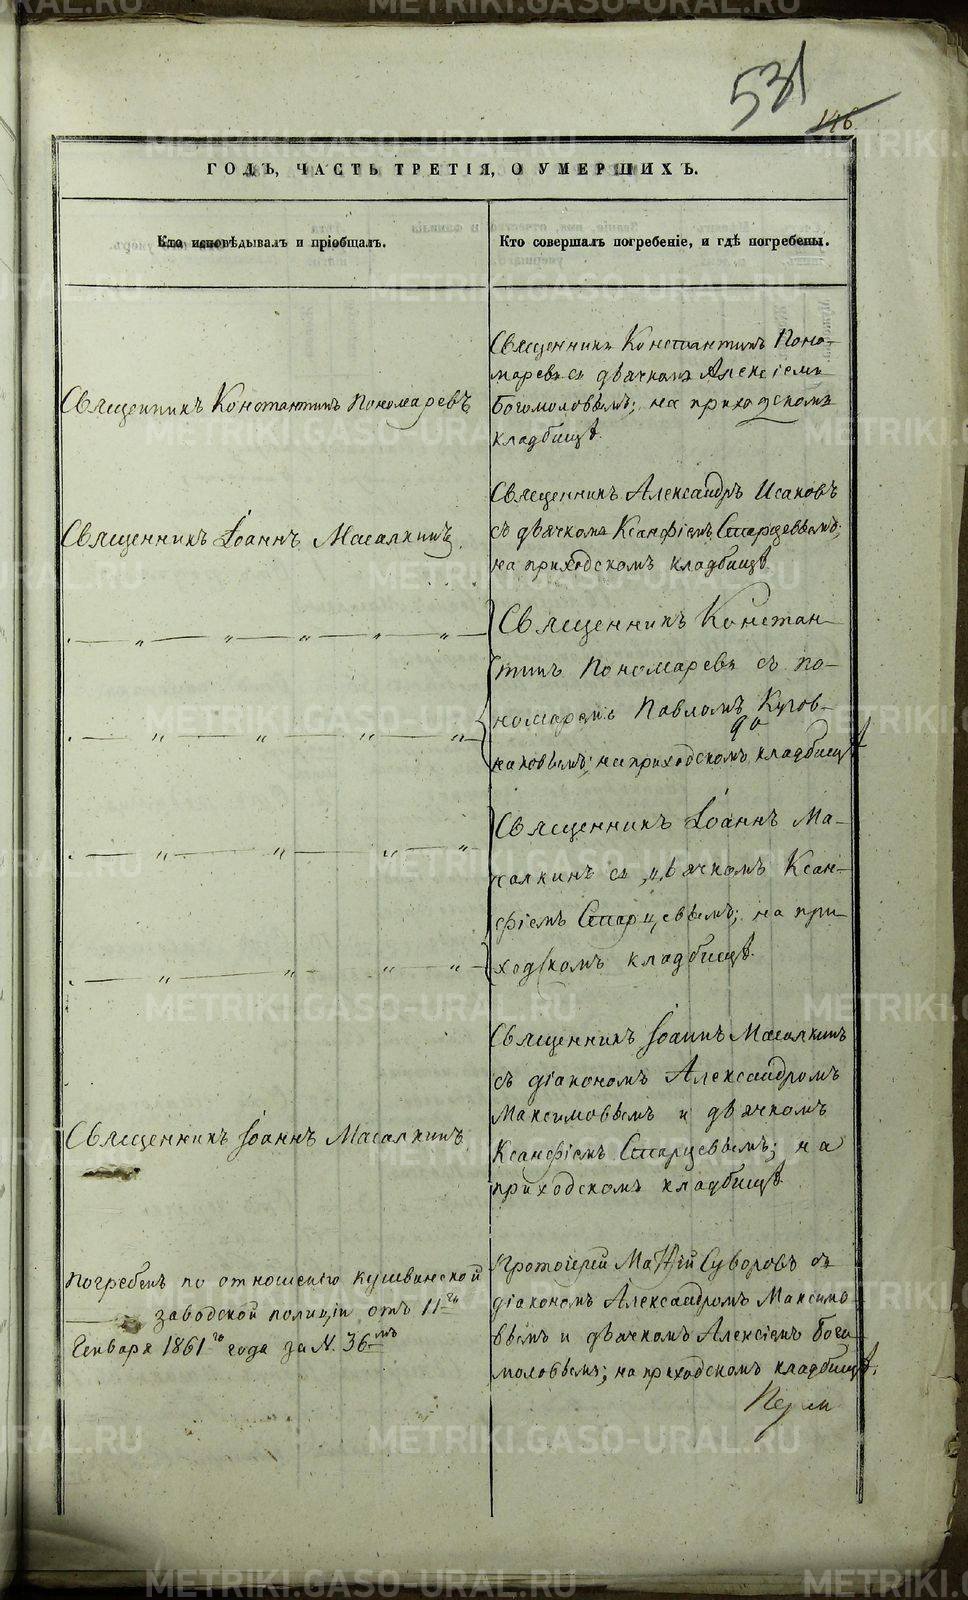 531
146
ГОДЪ, ЧАСТЬ ТРЕТІЯ, О УМЕРШИХЪ.
Кто исповѣдывалъ и пріобщалъ.
Кто совершалъ погребеніе, и гдѣ погребены.
Священникъ Константинъ Пономаревъ
Священникъ Константинъ Поно-
маревъ съ дьячкомъ Алексіемъ
Богомоловымъ; на приходскомъ
кладбищѣ.
Священникъ Іоаннъ Масалкинъ.
Священникъ Александръ Исаковъ
съ дьячкомъ Ксанфіемъ Старцевымъ;
на приходскомъ кладбищѣ
Священникъ Констан-
тинъ Пономаревъ съ по-
номаремъ Павломъ
на приходскомъ кладбищѣ
Священникъ Іоаннъ Ма-
салкинъ съ дьячкомъ Ксан-
фіемъ Старцевымъ; на при-
ходскомъ кладбищѣ.
Священникъ Іоаннъ Масалкинъ
Священникъ Іоаннъ Масалкинъ
съ діакономъ Александромъ
Максимовымъ и дьячкомъ
Ксанфіемъ Старцевымъ; на
приходскомъ кладбищѣ
Погребенъ по отношенію Кушвинской
заводской полиціи отъ 11го
Генваря 1861го года за N. 36мъ
Протоіерей Матѳій Суворовъ съ
діакономъ Александромъ Максимо
вымъ и дьячкомъ Алексіемъ Бого
моловымъ; на приходскомъ кладбищѣ.
METRIKI.GASO-URAL.RU